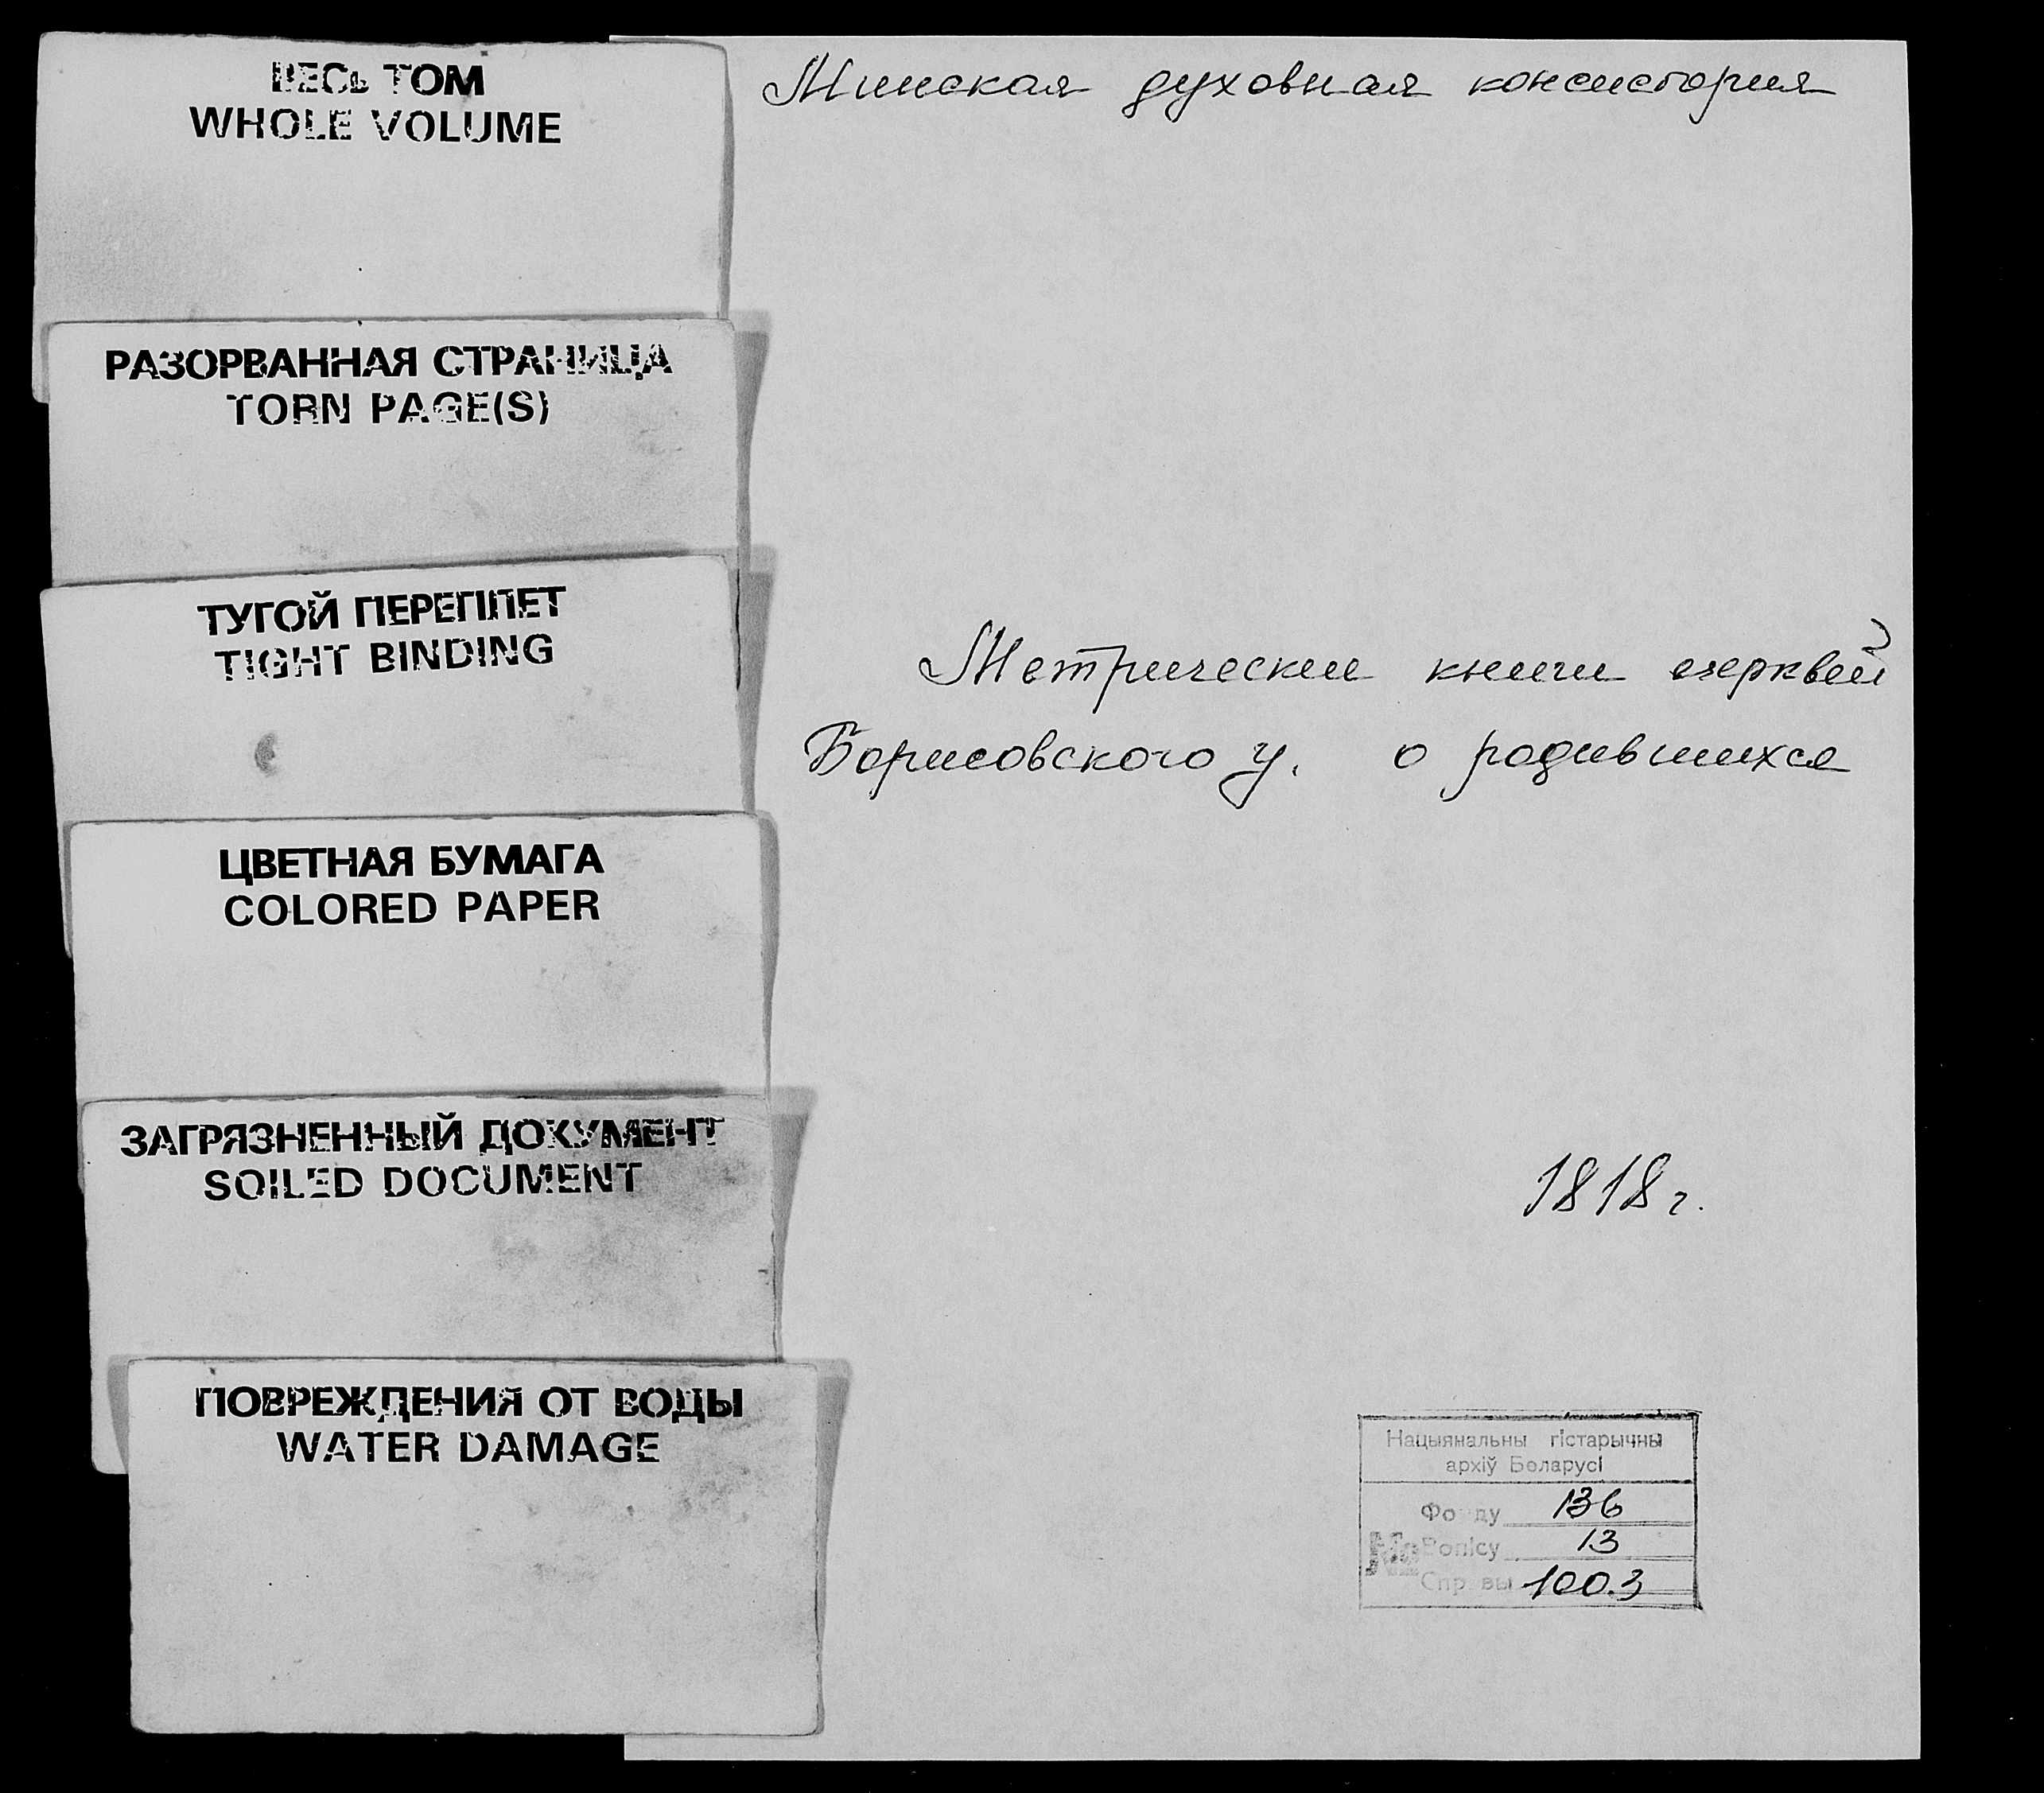 ВЕСЬ ТОМ
WHOLE VOLUME
РАЗОРВАННАЯ СТРАНИЦА
TORN PAGE(S)
ТУГОЙ ПЕРЕПЛЕТ
TIGHT BINDING
ЦВЕТНАЯ БУМАГА
COLORED PAPER
ЗАГРЯЗНЕННЫЙ ДОКУМЕНТ
SOILED DOCUMENT
ПОВРЕЖДЕНИЯ ОТ ВОДЫ
WATER DAMAGE
Минская духовная консистория
Метрические книги церквей
Борисовского у. о родившихся
1818 г.
Нацыянальны гістарычны
архіў Беларусі
Фонду 136
№ Вопісу 13
Справы 1003